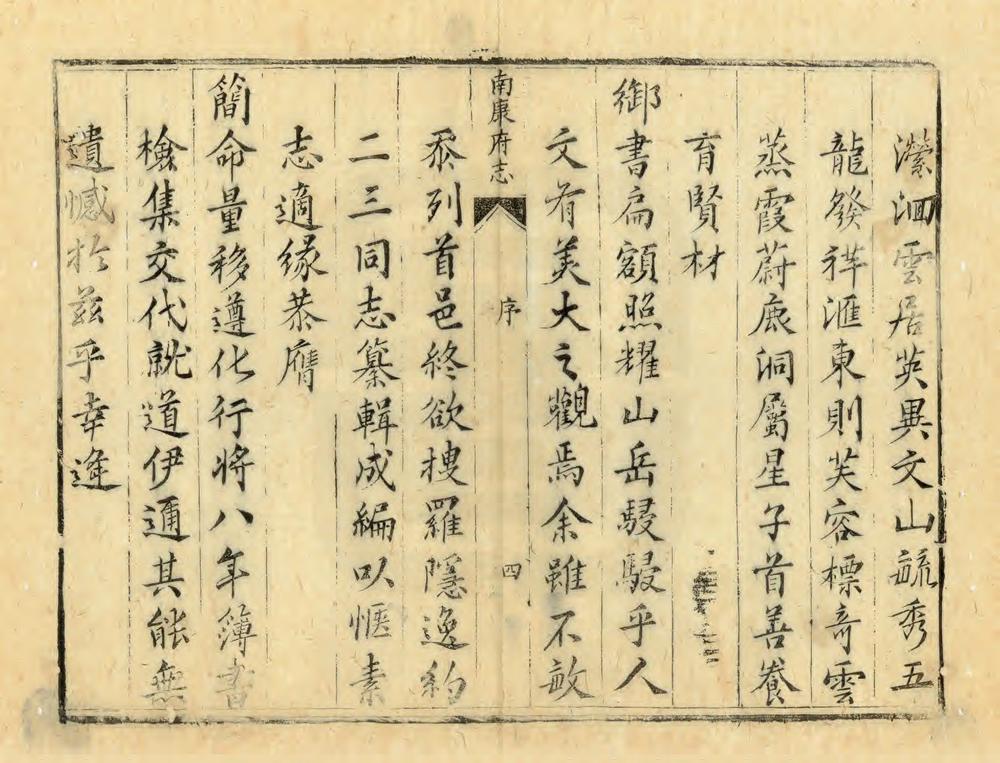 瀠洄雲居英異文山毓秀五
龍發祥滙東則芙容標竒雲
蒸霞蔚鹿洞屬星子首善養
育賢材
御書扁額照耀山岳駸駸乎人
文有美大之觀焉余雖不敏
南康府志
序
四
忝列首邑終欲搜羅隱逸約
二三同志纂輯成編以愜素
志適緣恭膺
簡命量移遵化行將八年簿書
檢集交代就道伊邇其能無
遺憾扵兹乎幸逢